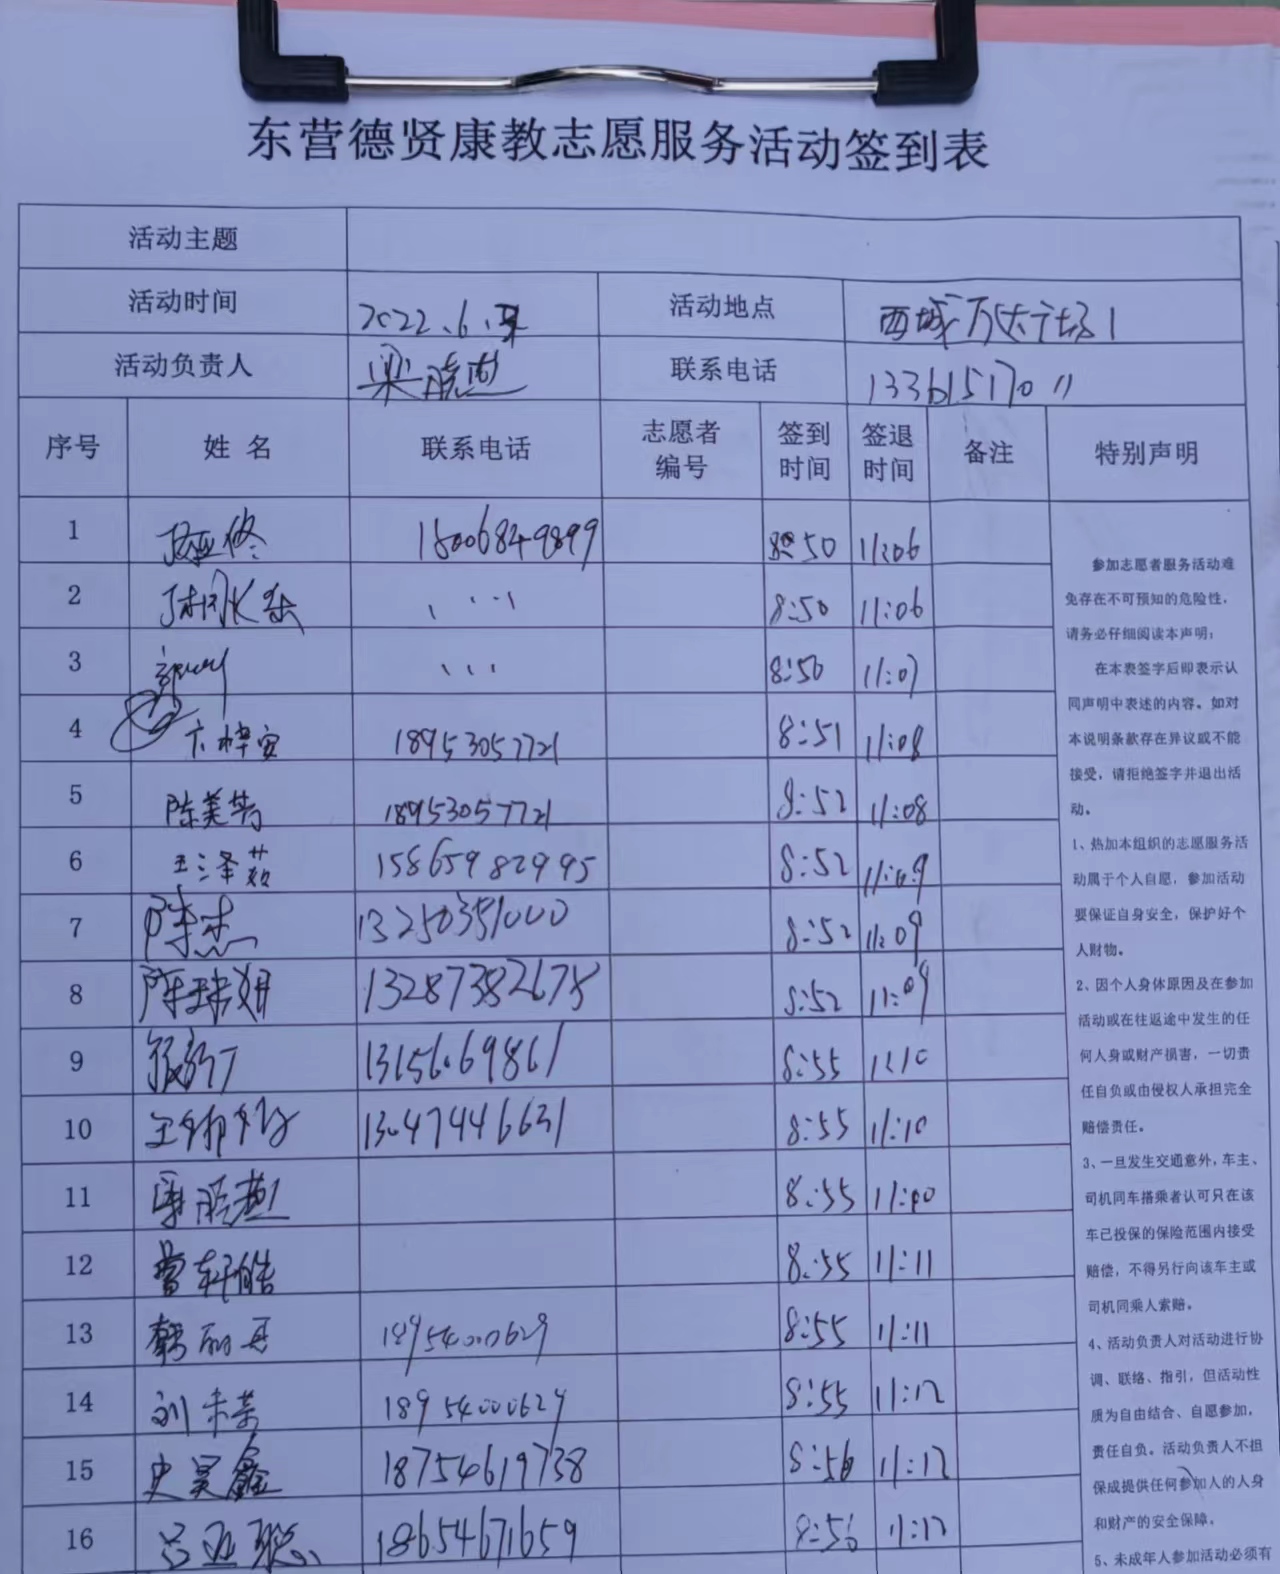 东营德贤康教志愿服务活动签到表
活动主题
活动时间 2022.6. 活动地点 西城万达广场1
活动负责人 梁晓燕 联系电话 13361517011
序号 姓名 联系电话 志愿者编号 签到时间 签退时间 备注 特别声明
1 15006849899 8:50 11:06
2 8:50 11:06
3 8:50 11:07
4 卞梓安 18953057721 8:51 11:08
5 陈美芳 18953057721 8:52 11:08
6 王泽茹 15865982995 8:52 11:09
7 陈杰 13250351000 8:52 11:09
8 13287382678 8:52 11:09
9 13156069861 8:55 11:10
10 13047446631 8:55 11:10
11 梁晓燕 8:55 11:10
12 曹轩皓 8:55 11:11
13 韩丽丹 18954000629 8:55 11:11
14 刘 18954000629 8:55 11:12
15 史昊鑫 18754619738 8:56 11:12
16 吕亚聪 18654671659 8:56 11:12
参加志愿者服务活动难
免存在不可预知的危险性，
请务必仔细阅读本声明：
在本表签字后即表示认
同声明中表述的内容。如对
本说明条款存在异议或不能
接受，请拒绝签字并退出活
动。
1、热加本组织的志愿服务活
动属于个人自愿，参加活动
要保证自身安全，保护好个
人财物。
2、因个人身体原因及在参加
活动或在往返途中发生的任
何人身或财产损害，一切责
任自负或由侵权人承担完全
赔偿责任。
3、一旦发生交通意外，车主、
司机同车搭乘者认可只在该
车已投保的保险范围内接受
赔偿，不得另行向该车主或
司机同乘人索赔。
4、活动负责人对活动进行协
调、联络、指引，但活动性
质为自由结合、自愿参加，
责任自负。活动负责人不担
保成提供任何参加人的人身
和财产的安全保障。
5、未成年人参加活动必须有